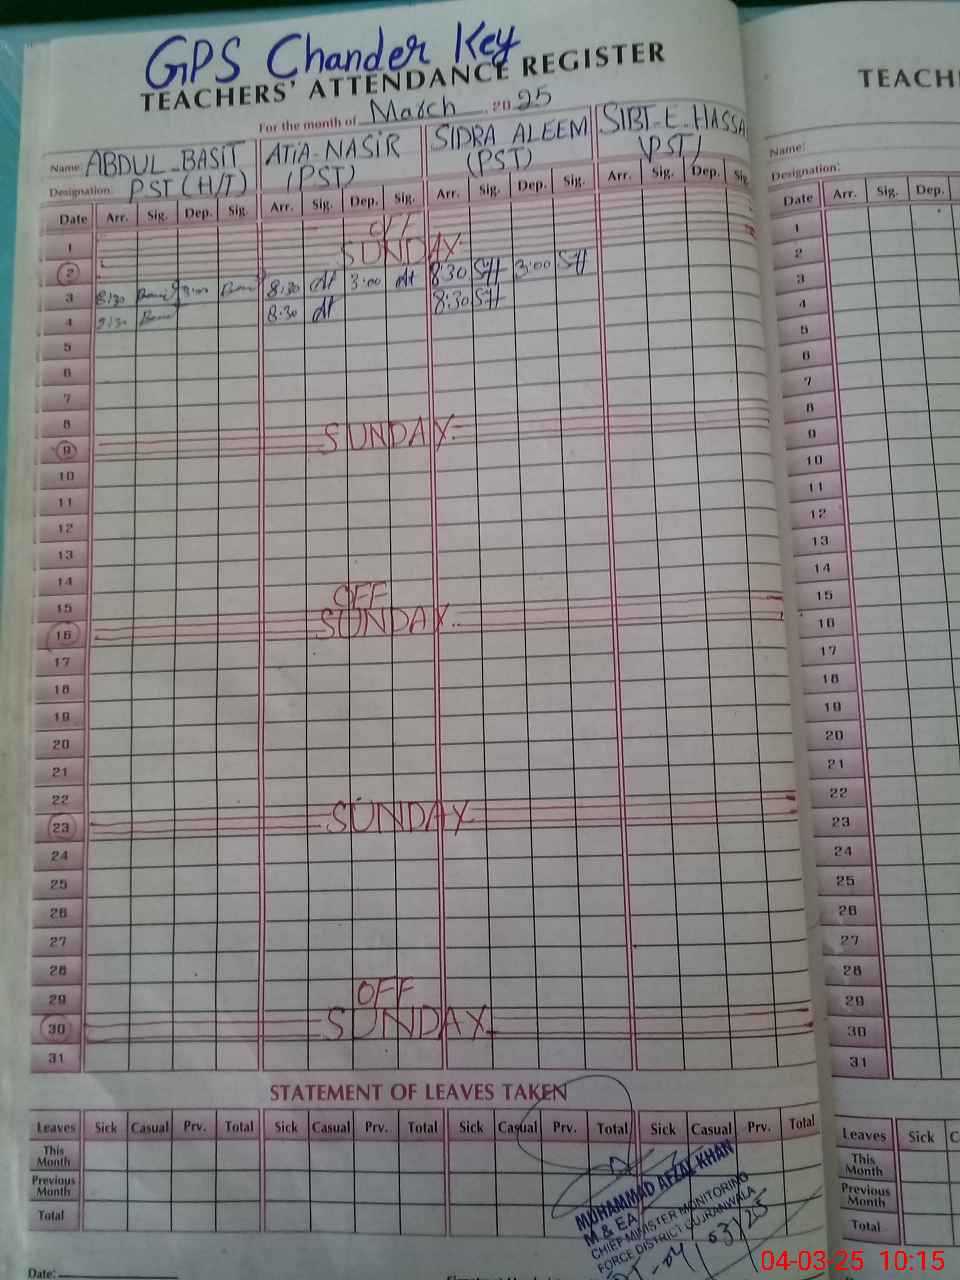 GPS Chander Key
TEACHERS' ATTENDANCE REGISTER
For the month of March 2025
Name: ABDUL BASIT ATIA NASIR SIDRA ALEEM SIBT-E-HASSA
Designation: PST (H/T) (PST) (PST) (PST)
Date Arr. Sig. Dep. Sig. Arr. Sig. Dep. Sig. Arr. Sig. Dep. Sig. Arr. Sig. Dep. Sig.
1 OFF
2 SUNDAY
3 8:30 3:00 8:30 3:00 8:30 3:00
4 8:30 8:30 8:30
5
6
7
8
9 SUNDAY
10
11
12
13
14
15 OFF
16 SUNDAY
17
18
19
20
21
22
23 SUNDAY
24
25
26
27
28
29 OFF
30 SUNDAY
31
STATEMENT OF LEAVES TAKEN
Leaves Sick Casual Prv. Total Sick Casual Prv. Total Sick Casual Prv. Total Sick Casual Prv. Total
This Month
Previous Month
Total
MUHAMMAD AFZAL KHAN
M & EA
CHIEF MINISTER MONITORING
FORCE DISTRICT GUJRANWALA
04/03/25
Date:
TEACH
Name:
Designation:
Date Arr. Sig. Dep.
1
2
3
4
5
6
7
8
9
10
11
12
13
14
15
16
17
18
19
20
21
22
23
24
25
26
27
28
29
30
31
Leaves Sick C
This Month
Previous Month
Total
04-03-25 10:15